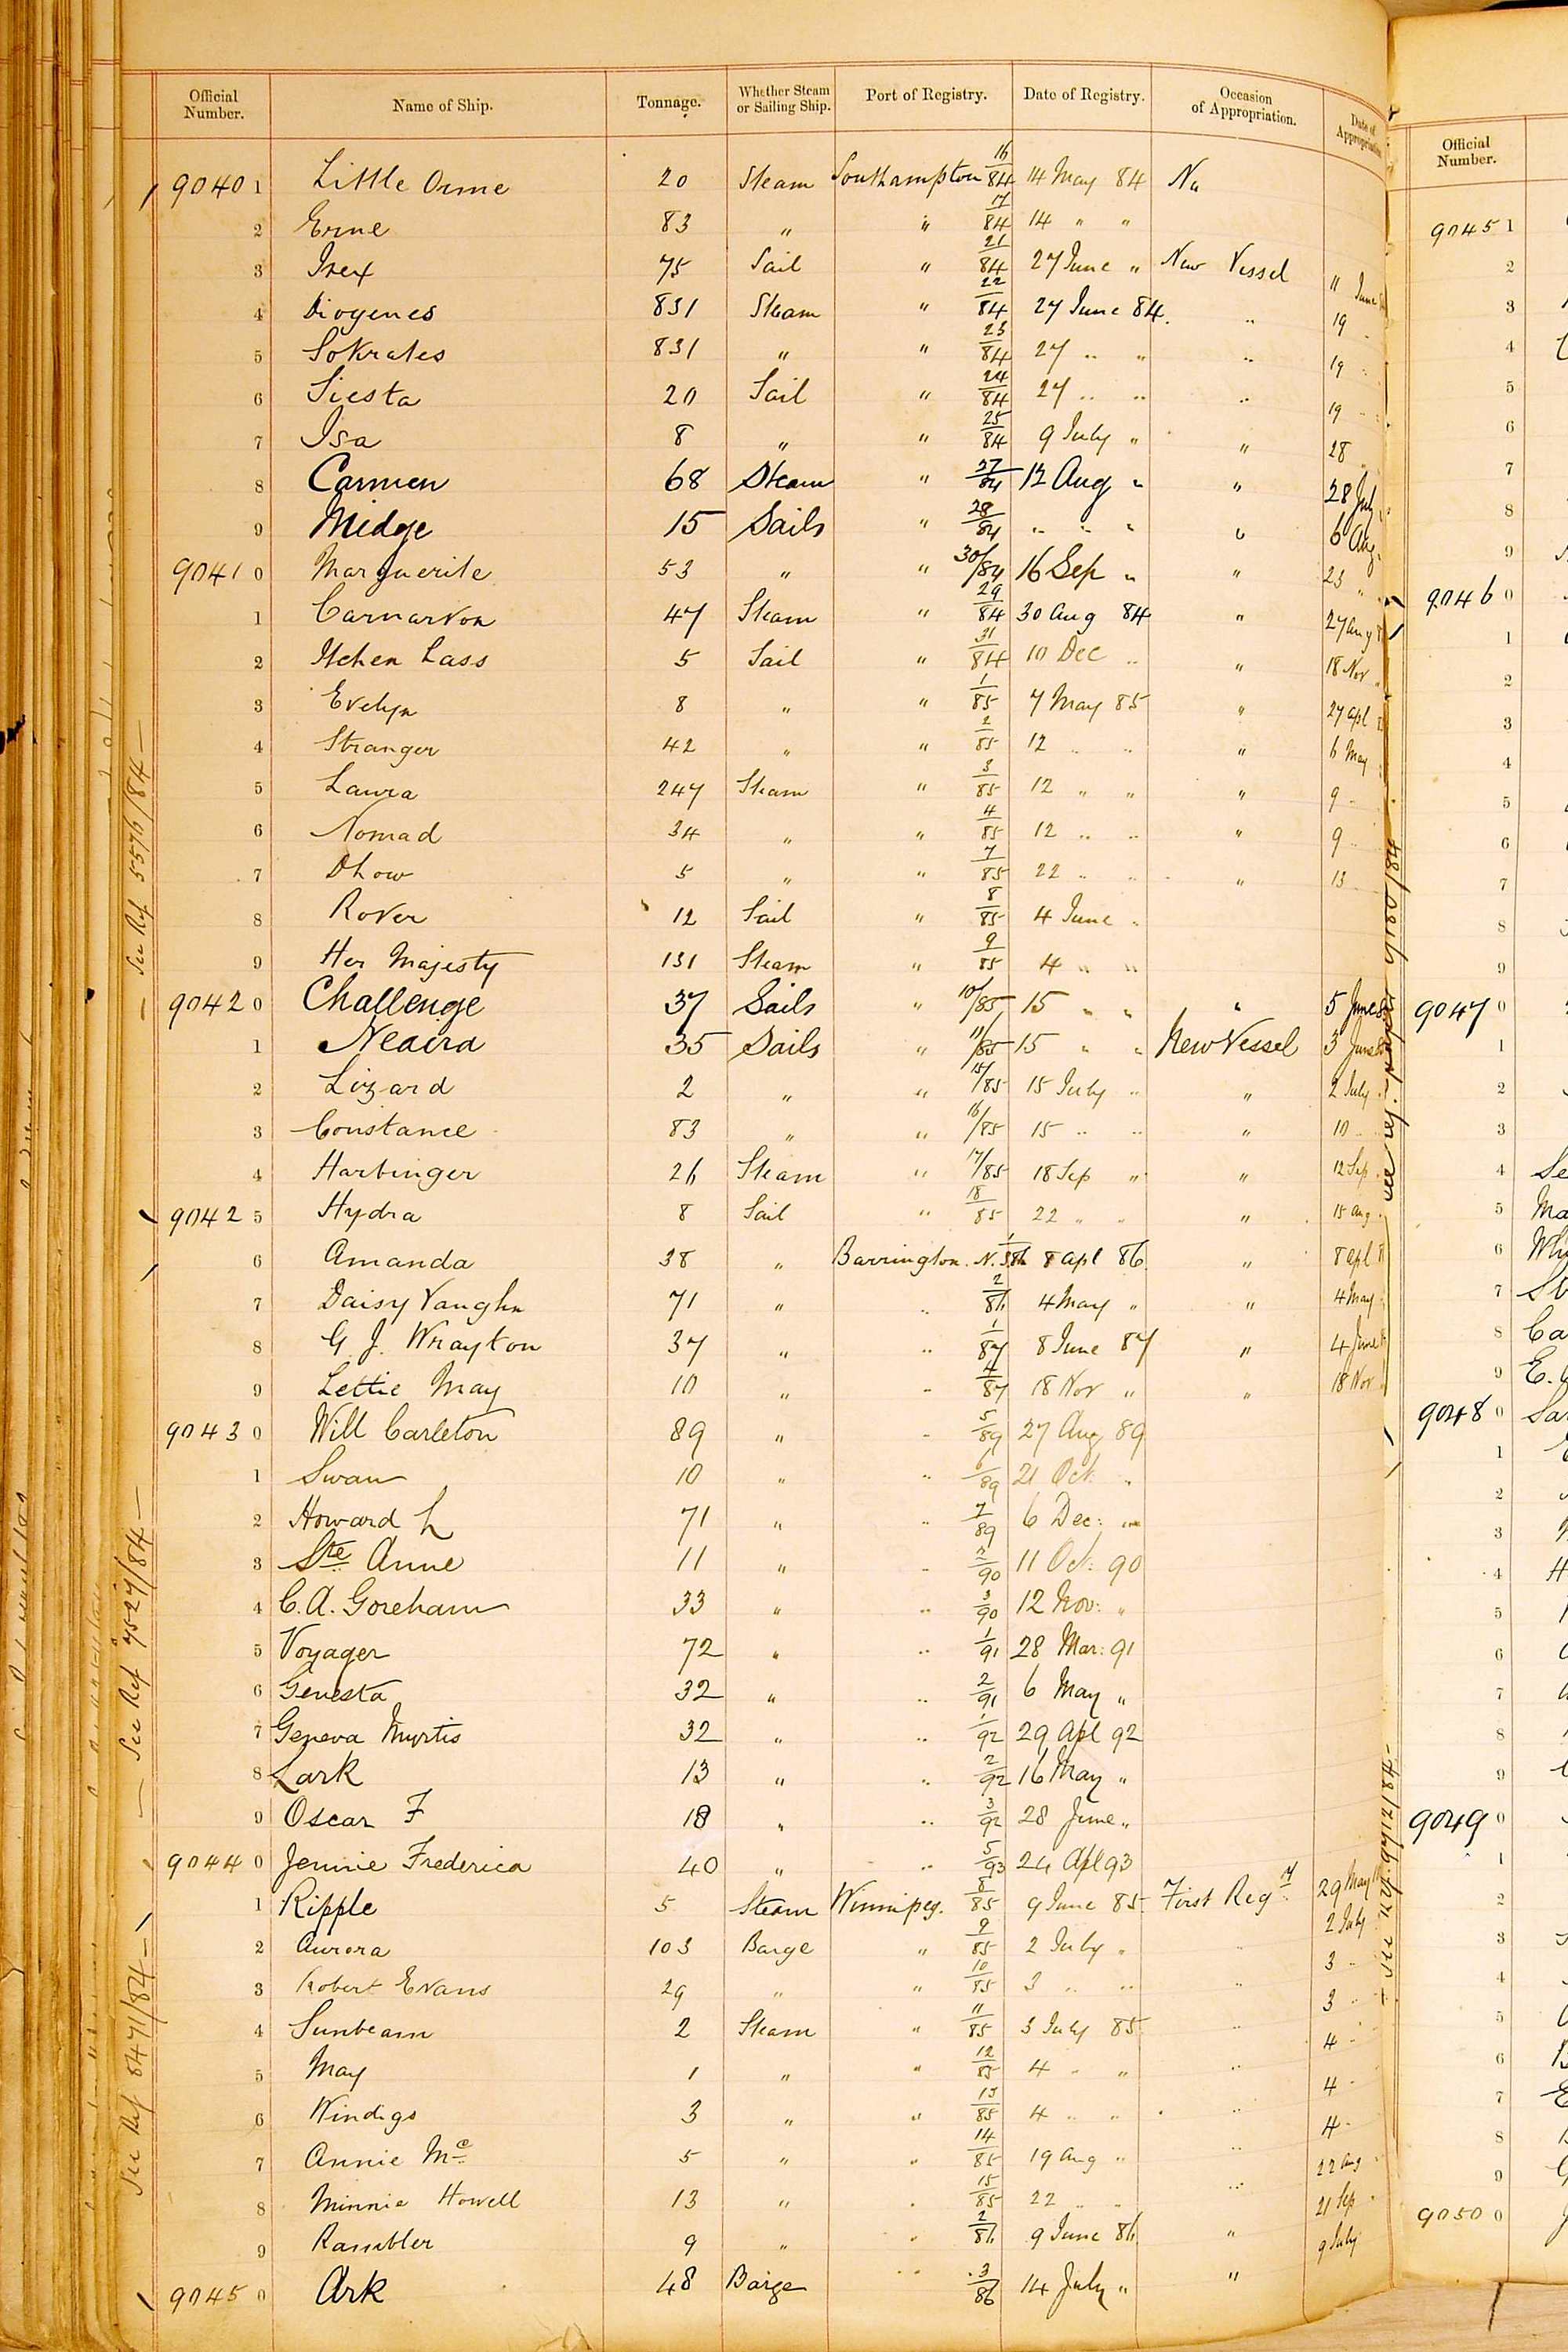 Official Number. Name of Ship. Tonnage. Whether Steam or Sailing Ship. Port of Registry. Date of Registry. Occasion of Appropriation. Date of Appropriation
9040 1 Little Orme 20 Steam Southampton 16/84 14 May 84
2 Erne 83 " " 17/84 14 " "
3 Irex 75 Sail " 21/84 27 June " New Vessel 11 June
4 Diogenes 831 Steam " 22/84 27 June 84. " 19 "
5 Sokrates 831 " " 23/84 27 " " " 19 "
6 Siesta 20 Sail " 24/84 27 " " " 19 "
7 Isa 8 " " 25/84 9 July " " 28 "
8 Carmen 68 Steam " 27/84 12 Aug " " 28 July
9 Midge 15 Sails " 28/84 " " " " 6 Aug.
9041 0 Marguerite 53 " " 30/84 16 Sep " " 23 "
1 Carnarvon 47 Steam " 29/84 30 Aug 84 " 27 Aug
2 Itchen Lass 5 Sail " 31/84 10 Dec " " 18 Nov "
3 Evelyn 8 " " 1/85 7 May 85 " 27 Apl
4 Stranger 42 " " 2/85 12 " " " 6 May
5 Laura 247 Steam " 3/85 12 " " " 9 "
6 Nomad 34 " " 4/85 12 " " " 9 "
7 Dhow 5 " " 7/85 22 " " " 13 "
8 Rover 12 Sail " 8/85 4 June "
9 Her Majesty 131 Steam " 9/85 4 " "
9042 0 Challenge 37 Sails " 10/85 15 " " " 5 June
1 Neaira 35 Sails " 11/85 15 " " New Vessel 3 June
2 Lizard 2 " " 15/85 15 July " " 2 July
3 Constance 83 " " 16/85 15 " " " 10 "
4 Harbinger 26 Steam " 17/85 18 Sep " " 12 Sep
9042 5 Hydra 8 Sail " 18/85 22 " " " 15 Aug
6 Amanda 38 " Barrington. N.S. 1/86 8 Apl 86. " 8 Apl
7 Daisy Vaughn 71 " " 2/86 4 May " " 4 May
8 G. J. Wrayton 37 " " 1/87 8 June 87 " 4 June
9 Lettie May 10 " " 4/87 18 Nov " " 18 Nov
9043 0 Will Carleton 89 " " 5/89 27 Aug 89
1 Swan 10 " " 6/89 21 Oct: "
2 Howard L 71 " " 7/89 6 Dec: "
3 Ste Anne 11 " " 2/90 11 Oct: 90
4 C. A. Goreham 33 " " 3/90 12 Nov: "
5 Voyager 72 " " 1/91 28 Mar: 91
6 Genesta 32 " " 2/91 6 May "
7 Geneva Myrtis 32 " " 1/92 29 Apl 92
8 Lark 13 " " 2/92 16 May "
9 Oscar F 18 " " 3/92 28 June "
9044 0 Jennie Frederica 40 " " 5/93 24 Apl 93
1 Ripple 5 Steam Winnipeg. 8/85 9 June 85. First Regy 29 May
2 Aurora 103 Barge " 9/85 2 July " " 2 July
3 Robert Evans 29 " " 10/85 3 " " " 3 "
4 Sunbeam 2 Steam " 11/85 3 July 85 " 3 "
5 May 1 " " 12/85 4 " " " 4 "
6 Windigo 3 " " 13/85 4 " " " 4 "
7 Annie Mc 5 " " 14/85 19 Aug " " 4 "
8 Minnie Howell 13 " " 15/85 22 " " " 22 Aug
9 Rambler 9 " " 2/86 9 June 86. " 21 Sep
9045 0 Ark 48 Barge " 3/86 14 July " " 9 July
— See Ref 5576/84 —
— See Ref 7527/84 —
See Ref 8471/84 —
Official Number.
9045 1
2
3
4
5
6
7
8
9
9046 0
1
2
3
4
5
6
7
8
9
9047 0
1
2
3
4
5
6
7
8
9
9048 0
1
2
3
4
5
6
7
8
9
9049 0
1
2
3
4
5
6
7
8
9
9050 0